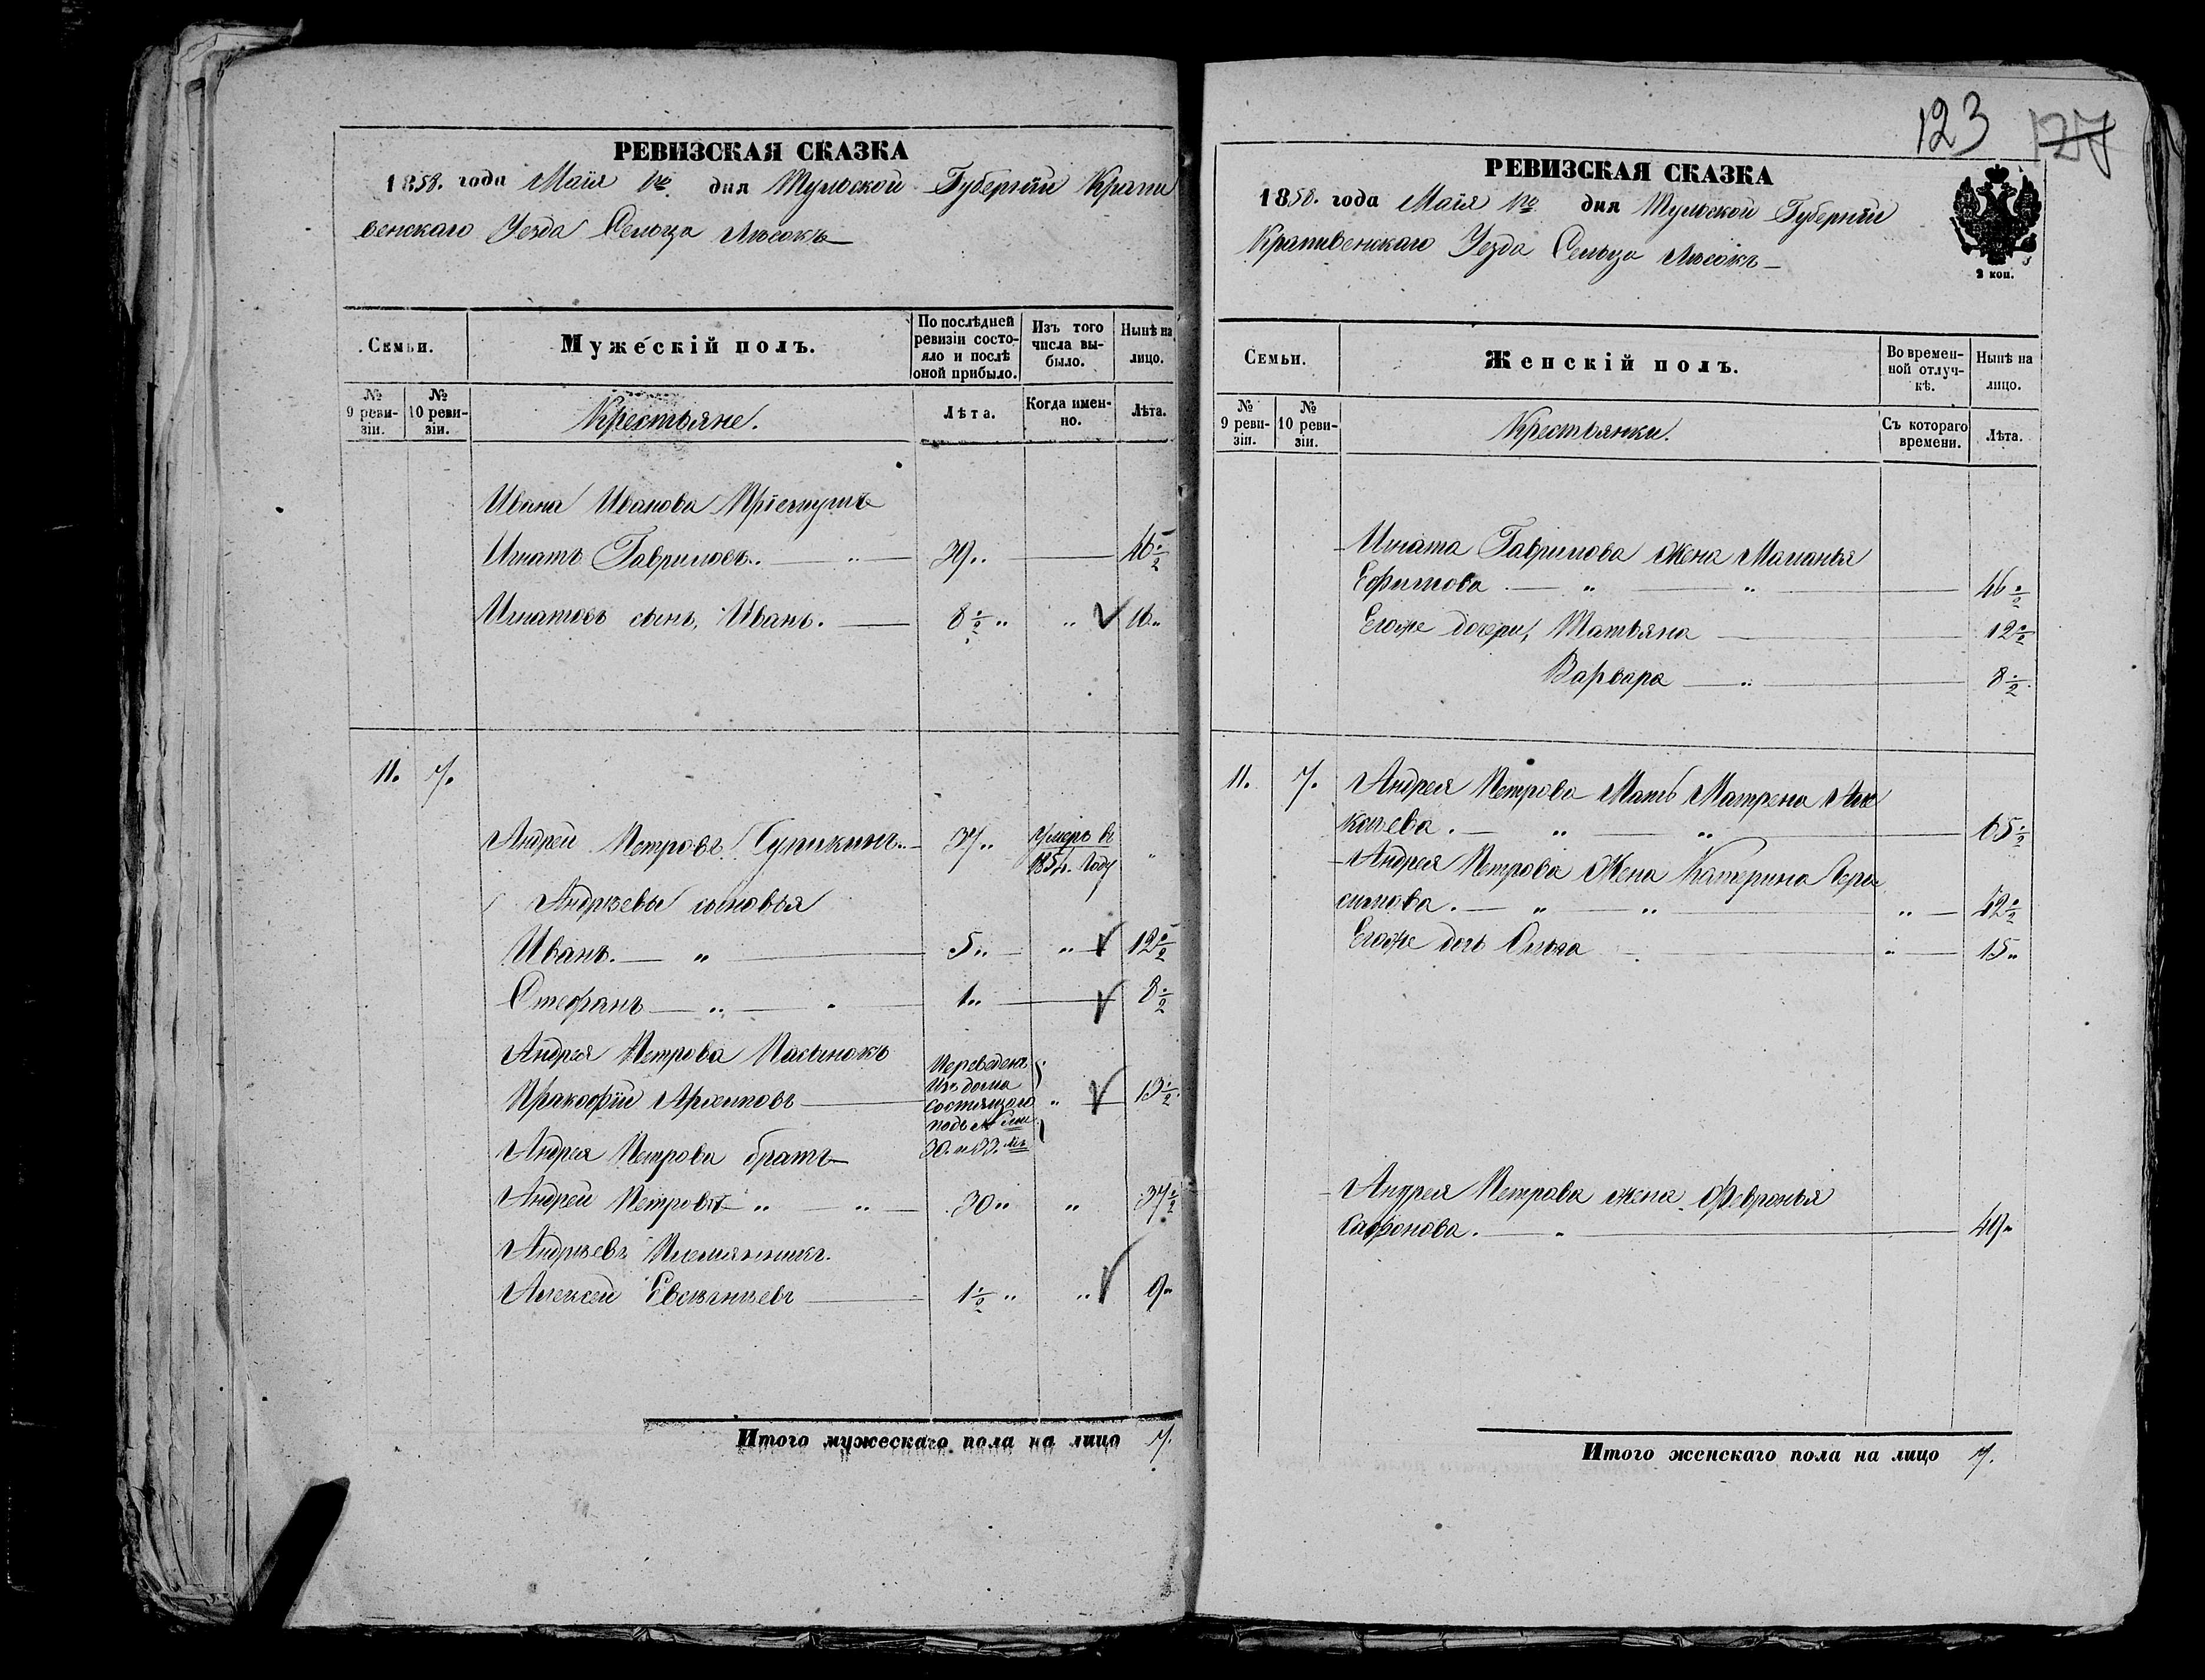 РЕВИЗСКАЯ СКАЗКА
1858. года Маія 1го дня Тульской Губерніи Крапи
венскаго Уезда Сельца Лѣсокъ
Семьи.
Мужескій полъ.
По послѣдней ревизіи состояло и послѣ оной прибыло.
Изъ того числа выбыло.
Нынѣ на лицо.
№ 9 ревизіи.
№ 10 ревизіи.
Крестьяне.
Лѣта.
Когда именно.
Лѣта.
Ивана Иванова Пріемышъ
Игнатъ Гавриловъ 39 46 1/2
Игнатовъ сынъ, Иванъ. 8 1/2 " 16
11. 7.
Андрей Петровъ 37 Умеръ въ "
Году
Андрѣевы сыновья
Иванъ. " 5 " 12 1/2
Стефанъ " 1 8 1/2
Андрея Петрова Пасынокъ
Переведенъ
Изъ дома
Пракофій Архиповъ состоящаго " 13 1/2
подъ №
30. и 33.
Андрея Петрова братъ
Андрей Петровъ " " 30 " 37 1/2
Андрѣевъ Племянникъ.
Алексей Евсѣнѣевъ 1 1/2 " 9
Итого мужескаго пола на лицо 7.
123 127
РЕВИЗСКАЯ СКАЗКА
1858. года Маія 1го дня Тульской Губерніи
Крапивенскаго Уезда Сельца Лѣсокъ
2 коп.
Семьи.
Женскій полъ.
Во временной отлучкѣ.
Нынѣ на лицо.
№ 9 ревизіи.
№ 10 ревизіи.
Крестьянки.
Съ котораго времени.
Лѣта.
Игната Гаврилова Жена Маланья
Ефимова " " 46 1/2
Егоже дочери, Татьяна 12 1/2
Варвара " 8 1/2
11. 7. Андрея Петрова Мать Матрена
" " 65 1/2
Андрея Петрова Жена Катерина Гера
симова. " " " 42 1/2
Егоже дочь " 15
Андрея Петрова жена Февронья
Сафонова. " 49
Итого женскаго пола на лицо 7.